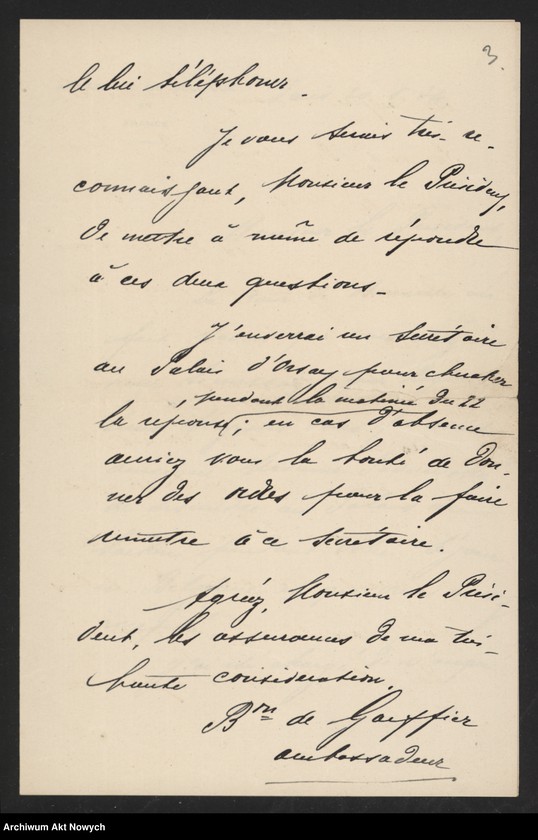 3.
le lui téléphoner.
Je vous serais très-re-
connaissant, Monsieur le Président,
de mettre à même de répondre
à ces deux questions.
J'enverrai un secrétaire
au Palais d'Orsay pour chercher
, pendant la matinée du 22
la réponse ; en cas d'absence
auriez vous la bonté de don-
ner des ordres pour la faire
remettre à ce secrétaire.
Agréez, Monsieur le Prési-
dent, les assurances de ma très-
haute considération.
Bon de Gaiffier
ambassadeur
Archiwum Akt Nowych